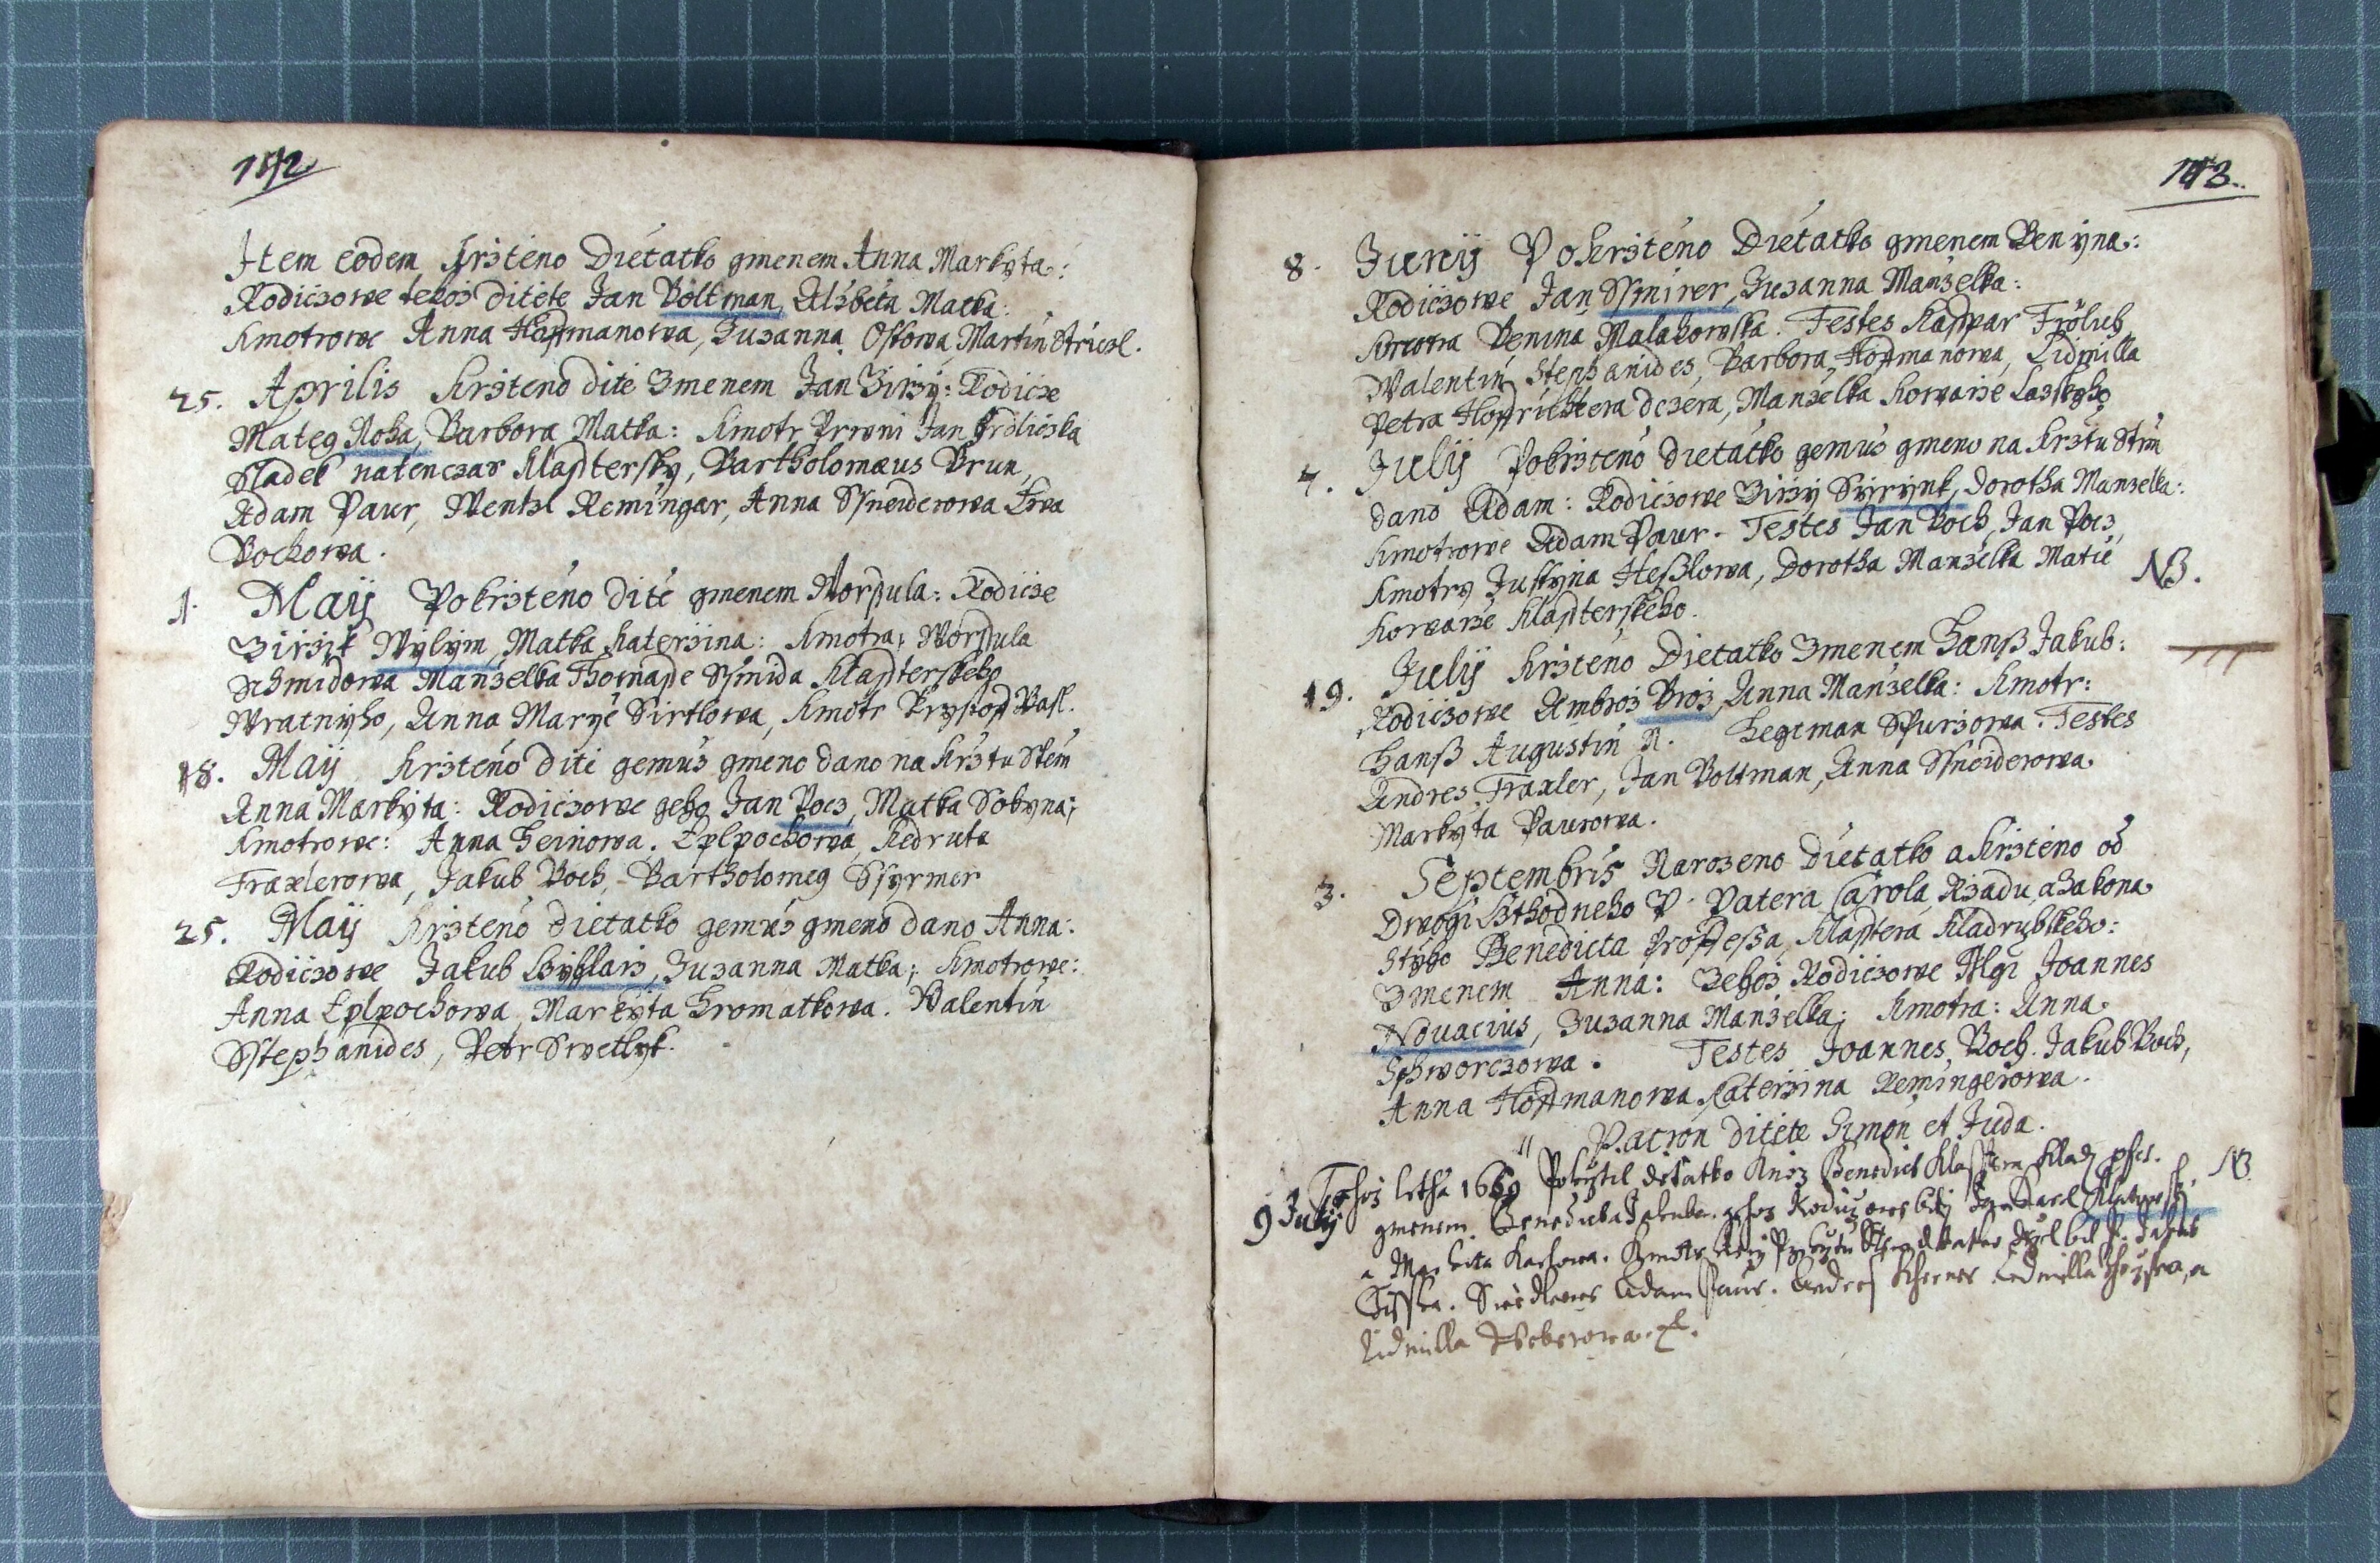 142.
Item eodem Krzteno Dietatko gmenem Anna Markyta:
Rodiczowe tehoz ditete Jan Boltman, Alzbeta Matka:
Kmotrowe Anna Hoffmanowa, Zuzanna Ossowa Martin Striczl.
25. Aprilis Krzteno dite Zmenem Jan Zirzy: Rodicze
Mateg Roha, Barbora Matka: Kmotr Prwni Jan Hrdliczka
Sladek natenczar Klassterssky, Bartholomæus Brun,
Adam Paur, Wentzl Remingar, Anna Ssneiderowa Ewa
Bochowa.
1. Maij Pokrzteno dite gmenem Worssula: Rodicze
Zirzik Wylym, Matka Katerzina: Kmotra; Worssula
Schmidowa Manzelka Thomasse Ssmida Klassterskeho
Wratnyho, Anna Marye Sirtlowa, Kmotr Krystoff Wass.
18. Maij Krzteno dite gemuz gmeno dano na Krztu Stem
Anna Markyta: Rodiczowe geho Jan Pocz, Matka Sobyna;
Kmotrowe: Anna Heinowa. Eplpochowa, Kedruta
Fraxlerowa, Jakub Boch, Bartholomeg Ssyrmer
25. Maij Krzteno dietatko gemuz gmeno dano Anna:
Rodiczowe Jakub, Zuzanna Matka; Kmotrowe:
Anna Eplpochowa, Markyta Hromatkowa. Walentin
Sstephanides, Petr Swetlyk.
143.
8. Junij Pokrzteno Dietatko gmenem Benyna:
Rodiczowe Jan Ssmirer, Zuzanna Manzelka:
Kmotra Benina Malahowska. Testes Kasspar Frölich,
Walentin Stephanides, Barbora Hoffmanowa, Lidmilla
Petra Hoffrichtera dczera, Manzelka Kowarze Lazskeho
7. Julij Pokrzteno dietatko gemuz gmeno na Krztu Stim
dano Adam: Rodiczowe Zirzy Syrynk, Dorotha Manzelka:
Kmotrowe Adam Paur. Testes Jan Boch, Jan Pocz,
Kmotry Justyna Heßlowa, Dorotha Manzelka Matie NB.
Kowarze Klassterskeho.
19. Julij Krzteno Dietatko Zmenem Hanß Jakub:
Rodiczowe Ambroz Broz, Anna Manzelka: Kmotr:
Hanß Augustin R. Hegtman Spurzowa. Testes
Andres Fraxler, Jan Boltman, Anna Ssneiderowa.
Markyta Paurowa.
3. Septembris Narozeno Dietatko a Krzteno od
Dwogi Cthodneho P. Patera Carola, Rzadu, a Zakona
Styho Benedicta Professa, Klasstera Kladrubskeho:
Zmenem Anna: Gehoz Rodiczowe Joannes
Novacius, Zuzanna Manzelka; Kmotra: Anna
Schworczowa. Testes Joannes Boch. Jakub Boch,
Anna Hoffmanowa Katerzina Remingerowa.
Patron ditete Simon et Juda.
9 Julij Tehoz letha 1669 Pokrztil detatko Knez Benedict NB
gmenem Rodiczowe
a Markita Kmotr
Adam Paur. Andres Lidmilla
Lidmilla Weberowa.